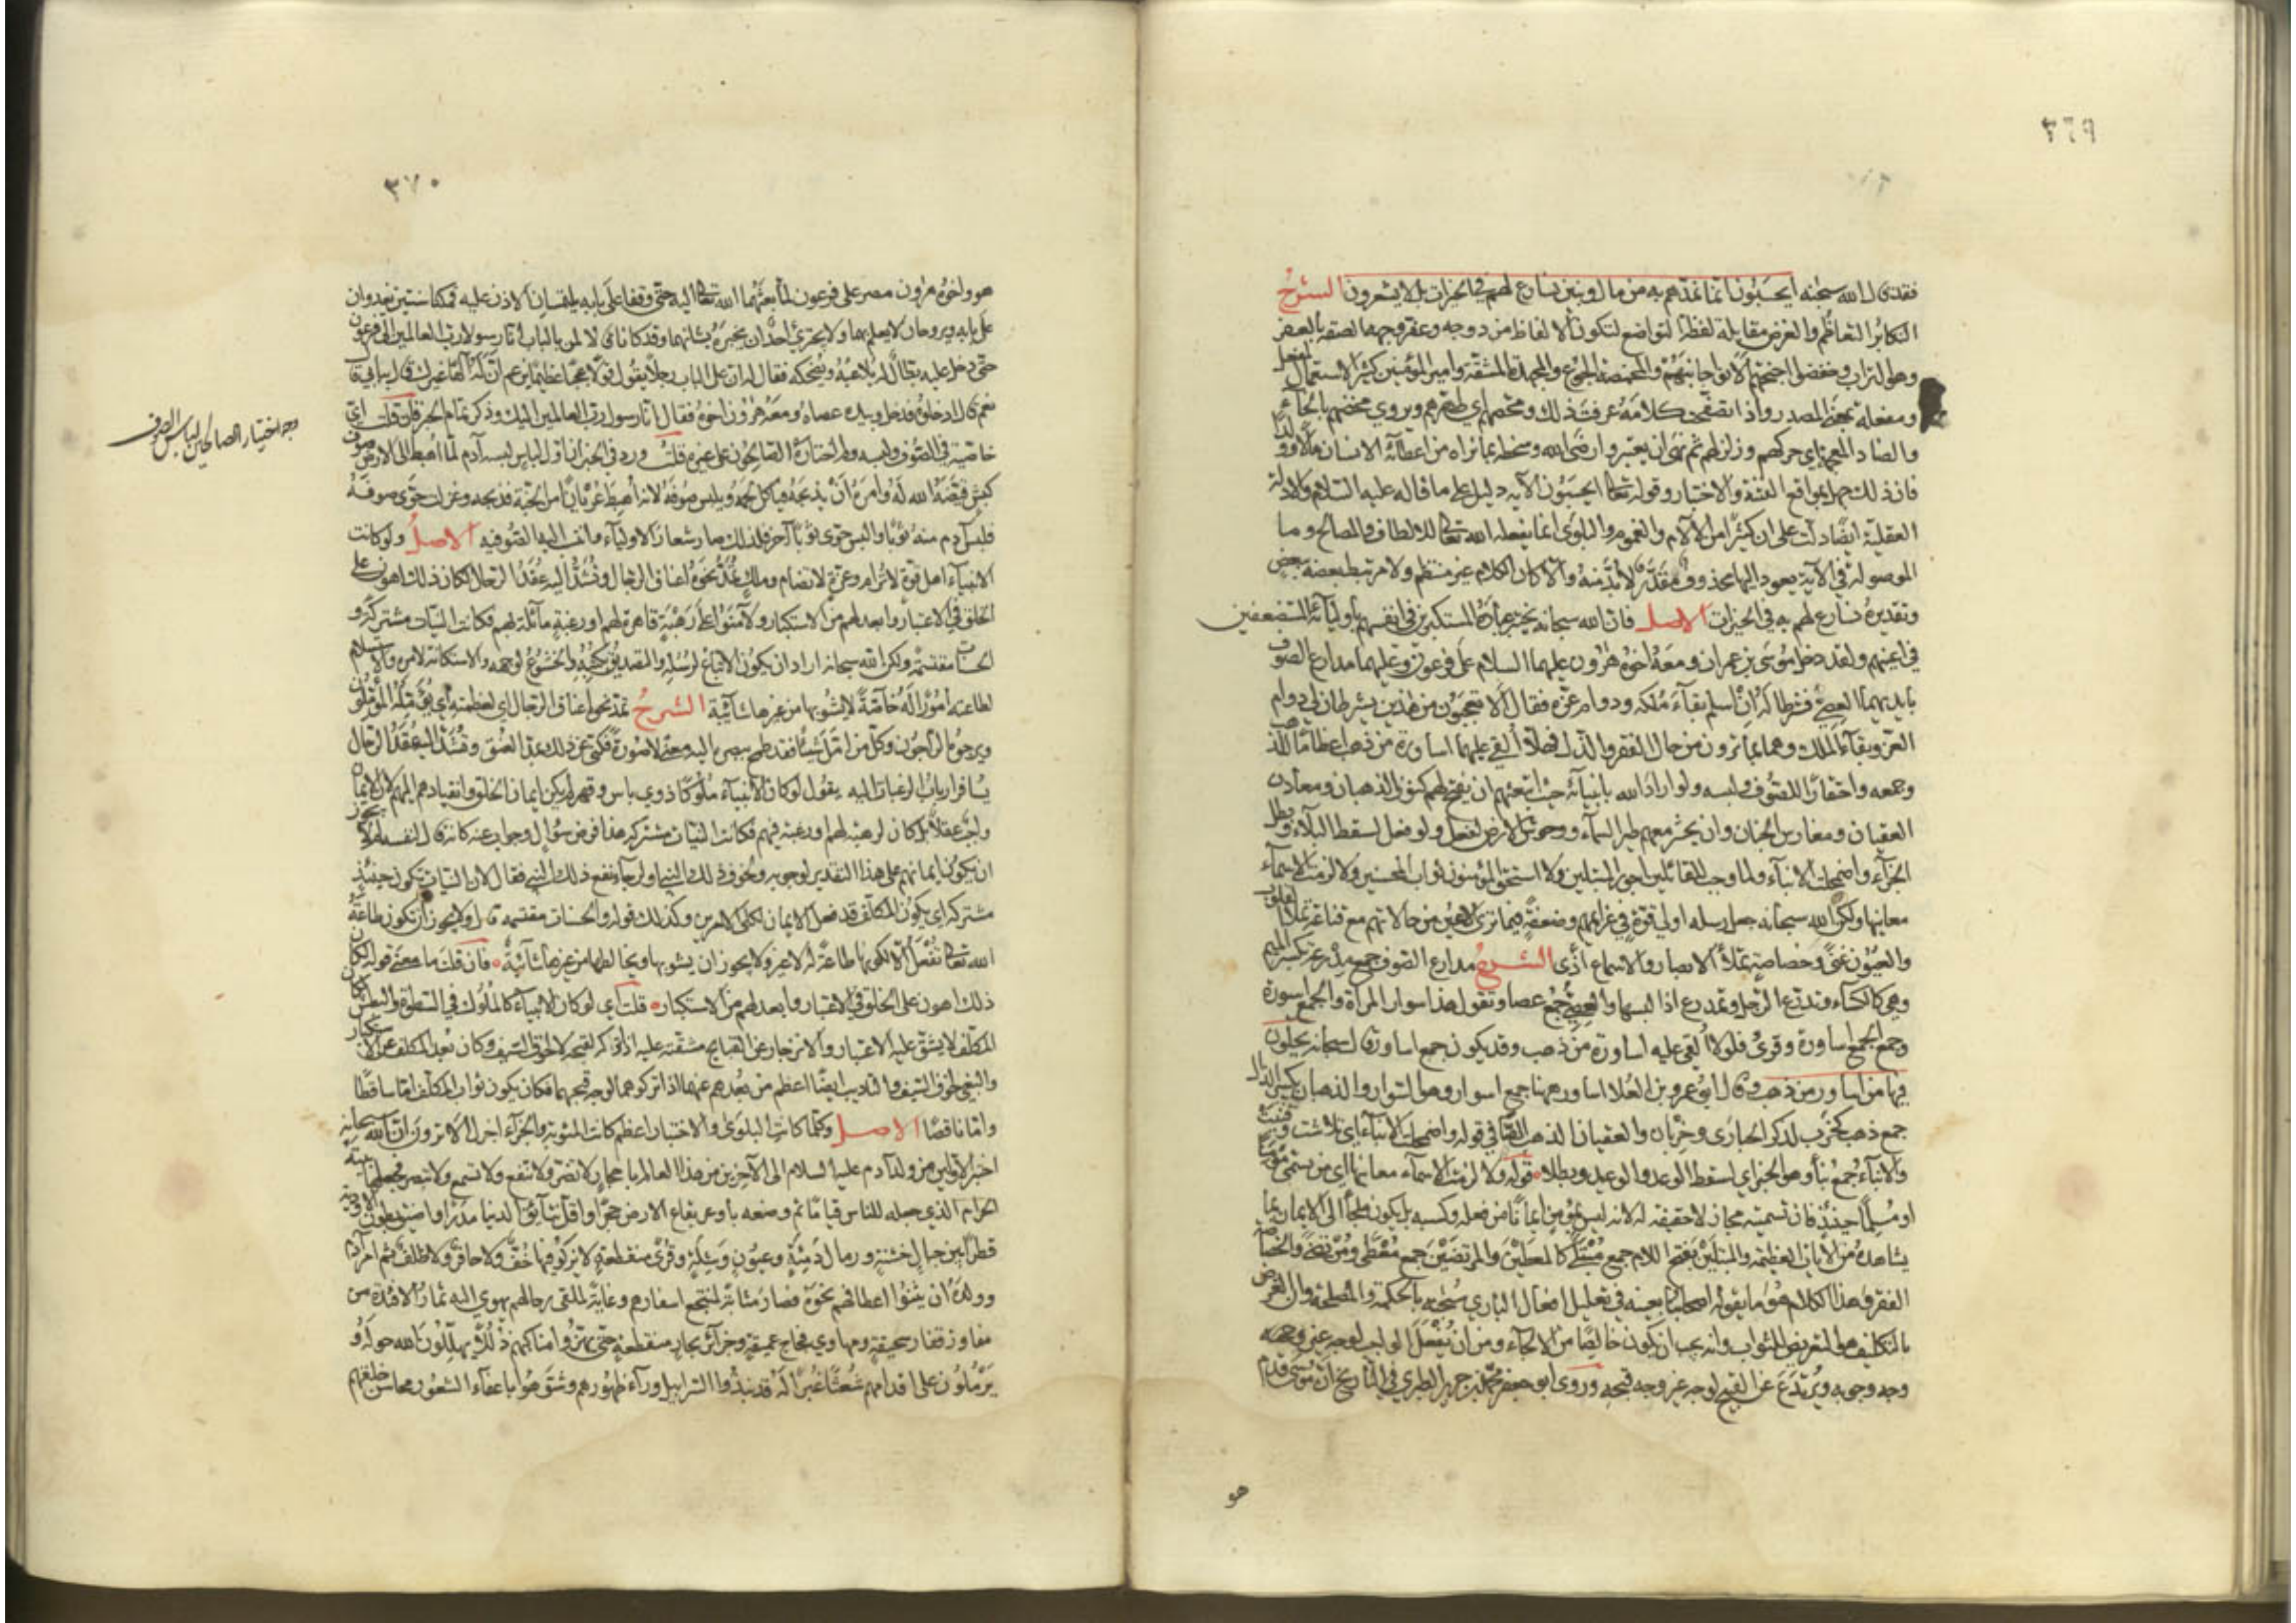 ٣٦٩
فقد قال الله سبحنه ايحسبون انما نمدهم به من مال وبنين نسارع لهم في الخيرات بل لا يشعرون الشرح
التكابر التعاظم والغرض مقابلة لفظة التواضع لتكون الالفاظ مزدوجه وعفر وجهه الصقه بالعفر
وهو التراب وخفضوا اجنحتهم الانوا جانبهم والمخمصة الجوع والمجهدة المشقة وامير المؤمنين كثير الاستعمال لمفعل
ومفعلة بمعنى المصدر واذا تصفحت كلامه عرفت ذلك ومحصهم اي طهرهم ويروي مخضهم بالخاء
والضاد المعجمة اي حركهم وزلزلهم ثم نهى ان يعتبر رضى الله وسخطه بما نراه من اعطائه الانسان مالا وولدا
فان ذلك جهل بمواقع الفتنة والاختبار وقوله تعالى ايحسبون الآيه دليل على ما قاله عليه السلام والادلة
العقلية ايضا دلت على ان كثيرا من الآلام والغموم والبلوى انما يفعله الله تعالى للالطاف والمصالح وما
الموصولة في الآية يعود اليها محذوف مقدر لا بد منه والا كان الكلام غير منتظم ولا مرتبط بعضه ببعض
وتقديره نسارع لهم به في الخيرات الاصل فان الله سبحانه يختبر عباده المستكبرين في انفسهم باوليائه المستضعفين
في اعينهم ولقد دخل موسى بن عمران ومعه اخوه هرون عليهما السلام على فرعون وعليهما مدارع الصوف
بايديهما العصي فشرطا له ان اسلم بقاء ملكه ودوام عزه فقال الا تعجبون من هذين يشرطان لي دوام
العز وبقاء الملك وهما بما ترون من حال الفقر والذل فهلا القي عليهما اساورة من ذهب اعظاما للذهب
وجمعه واحتقارا للصوف ولبسه ولو اراد الله بانبيائه حيث ابتعثهم ان يفتح لهم كنوز الذهبان ومعادن
العقيان ومغارس الجنان وان يحشر معهم طير السماء ووحوش الارض لفعل ولو فعل لسقط البلاء وبطل
الجزاء واضمحلت الانباء ولما وجب للقائلين اجور المبتلين ولا استحق المؤمنون ثواب المحسنين ولا لزمت الاسماء
معانيها ولكن الله سبحانه جعل رسله اولي قوة في عزائمهم وضعفة فيما ترى الاعين من حالاتهم مع قناعة تملا القلوب
والعيون غنى وخصاصة تملأ الابصار والاسماع اذى الشرح مدارع الصوف جمع مدرعة بكسر الميم
وهي كالكساء وتدرع الرجل وتمدرع اذا لبسها والعصي جمع عصا وتقول هذا سوار المرأة والجمع اسورة
وجمع الجمع اساورة وقرئ فلولا القي عليه اساورة من ذهب وقد يكون جمع اساور قال سبحانه يحلون
فيها من اساور من ذهب وقال ابو عمرو بن العلا اساور ههنا جمع اسوار وهو السوار والذهبان بكسر الذال
جمع ذهب كخرب لذكر الحبارى وخربان والعقيان الذهب ايضا في قوله واضمحلت الانباء اي تلاشت وفنيت
والانباء جمع نبأ وهو الخبر اي لسقط الوعد والوعيد وبطلا قوله ولا لزمت الاسماء معانيها اي من يسمى مؤمنا
او مسلما حينئذ فان تسميته مجاز لا حقيقة له لانه ليس بمؤمن ايمانا من فعله وكسبه بل يكون ملجأ الى الايمان بما
يشاهده من الآيات العظيمة والمبتلين بفتح اللام جمع مبتلى كالمعطين والمرتضين جمع معطى ومرتضى والخصاصة
الفقر وهذا الكلام هو ما يقوله اصحابنا بعينه في تعليل افعال الباري سبحنه بالحكمة والمصلحة وان الغرض
بالتكليف هو التعريض للثواب وانه يجب ان يكون خالصا من الالجاء ومن ان يفعل الواجب لوجه غير وجه
وجه وجوبه ويرتدع عن القبيح لوجه غير وجه قبحه وروى ابو جعفر محمد بن جرير الطبري في التاريخ ان موسى قدم
هو
٣٧٠
هو واخوه هرون مصر على فرعون لما بعثهما الله تعالى اليه حتى وقفا على بابه يلتمسان الاذن عليه فمكثا سنتين يغدوان
على بابه ويروحان لا يعلم بهما ولا يجترئ احد ان يخبره بشانهما وقد كانا قالا لمن بالباب انا رسولا رب العالمين الى فرعون
حتى دخل عليه بطال له يلاعبه ويضحكه فقال له ان على الباب رجلا يقول قولا عجبا عظيما يزعم ان له الها غيرك قال ببابي قال
نعم قال ادخلوه فدخل وبيده عصاه ومعه هرون اخوه فقال انا رسول رب العالمين اليك وذكر تمام الخبر فان قلت اي
خاصية في الصوف ولبسه ولم اختاره الصالحون على غيره قلت ورد في الخبر ان اول لباس لبسه آدم لما اهبط الى الارض صوف
كبش قيضه الله له وامره ان يذبحه فياكل لحمه ويلبس صوفه لانه اهبط عريانا من الجنة فذبحه وغزلت حوى صوفه
فلبس آدم منه ثوبا والبس حوى ثوبا آخر فلذلك صار شعار الاولياء وانتسبت اليه الصوفيه الاصل ولو كانت
الانبياء اهل قوة لا ترام وعزة لا تضام وملك تمد نحوه اعناق الرجال وتشد اليه عقد الرحال لكان ذلك اهون على
الخلق في الاعتبار وابعد لهم من الاستكبار ولآمنوا عن رهبة قاهرة لهم او رغبة مائلة بهم فكانت النيات مشتركة و
الحسنات مقتسمة ولكن الله سبحانه اراد ان يكون الاتباع لرسله والتصديق بكتبه والخشوع لوجهه والاستكانة لامره والاستسلام
لطاعته امورا له خاصة لا يشوبها من غيرها شائبة الشرح تمد نحوه اعناق الرجال اي لعظمته اي يؤمله المؤملون
ويرجوه الراجون وكل من امل شيئا فقد طمح ببصره اليه معنى لا صورة فكنى عن ذلك بمد العنق وتشد اليه عقد الرحال
يسافر ارباب الرغبات اليه يقول لو كان الانبياء ملوكا ذوي باس وقهر لم يكن ايمان الخلق وانقيادهم اليهم لان الايمان
واجب عقلا بل كان لرهبة لهم او رغبة فيهم فكانت النيات مشتركة هذا فرض سؤال وجواب عنه كانه قال لنفسه لم لا يجوز
ان يكون ايمانهم على هذا التقدير لوجوبه ولخوف ذلك النبي او لرجاء نفع ذلك النبي فقال لان النيات تكون حينئذ
مشتركة اي يكون المكلف قد فعل الايمان لكلا الامرين وكذلك قوله والحسنات مقتسمه قال ولا يجوز ان تكون طاعة
الله تعالى تفعل الا لكونها طاعة له لا غير ولا يجوز ان يشوبها ويخالطها من غيرها شائبة فان قلت ما معنى قوله لكان
ذلك اهون على الخلق في الاعتبار وابعد لهم من الاستكبار قلت اي لو كان الانبياء كالملوك في السطوة والبطش لكان
المكلف لا يشق عليه الاعتبار والانزجار عن القبايح مشقته عليه اذا تركه لقبحه لا لخوف السيف وكان بعد المكلف عن الاستكبار
والبغي لخوف السيف والتاديب ايضا اعظم من بعدهم عنهما اذا تركوهما لوجه قبحهما فكان يكون ثواب المكلف اما ساقطا
واما ناقصا الاصل وكلما كانت البلوى والاختبار اعظم كانت المثوبة والجزاء اجزل الا ترون ان الله سبحانه
اختبر الاولين من ولد آدم عليه السلام الى الآخرين من هذا العالم باحجار لا تضر ولا تنفع ولا تسمع ولا تبصر فجعلها بيته
الحرام الذي جعله للناس قياما ثم وضعه باوعر بقاع الارض حجرا واقل نتايق الدنيا مدرا واضيق بطون الاودية
قطرا بين جبال خشنة ورمال دمثة وعيون وشلة وقرى منقطعة لا يزكو فيها خف ولا حافر ولا ظلف ثم امر آدم
وولده ان يثنوا اعطافهم نحوه فصار مثابة لمنتجع اسفارهم وغاية لملقى رحالهم تهوي اليه ثمار الافئدة من
مفاوز قفار سحيقة ومهاوي فجاج عميقة وجزائر بحار منقطعة حتى يهزوا مناكبهم ذللا يهللون الله حوله و
يرملون على اقدامهم شعثا غبرا له قد نبذوا السرابيل وراء ظهورهم وشوهوا باعفاء الشعور محاسن خلقهم
وجه اختيار الصالحين لباس الصوف